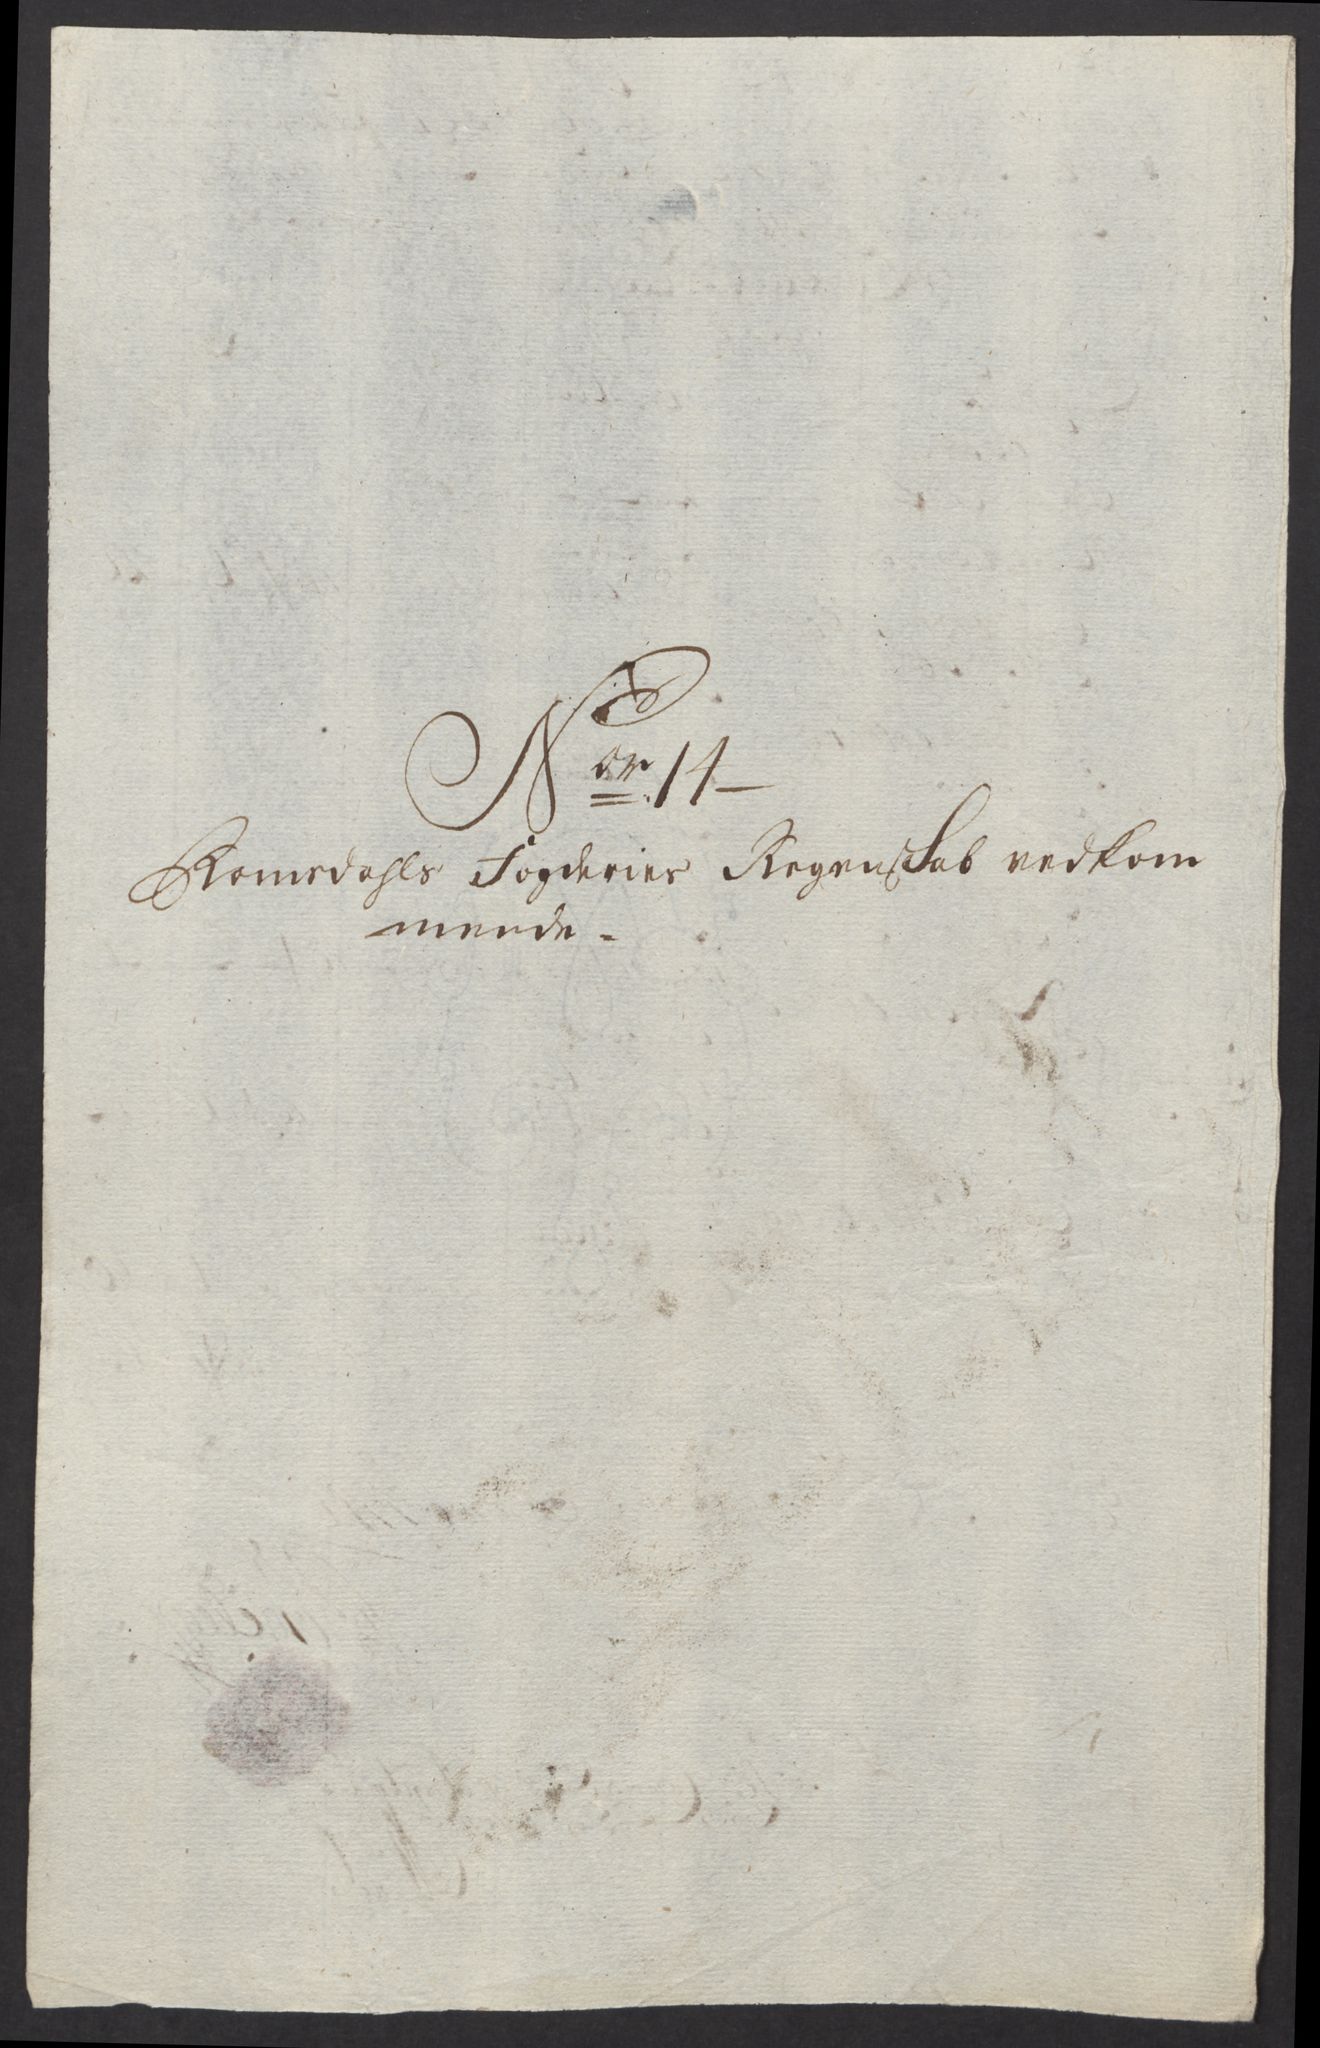 Nor 14
Romsdahls Fogderies Regenskab vedkom
mende.